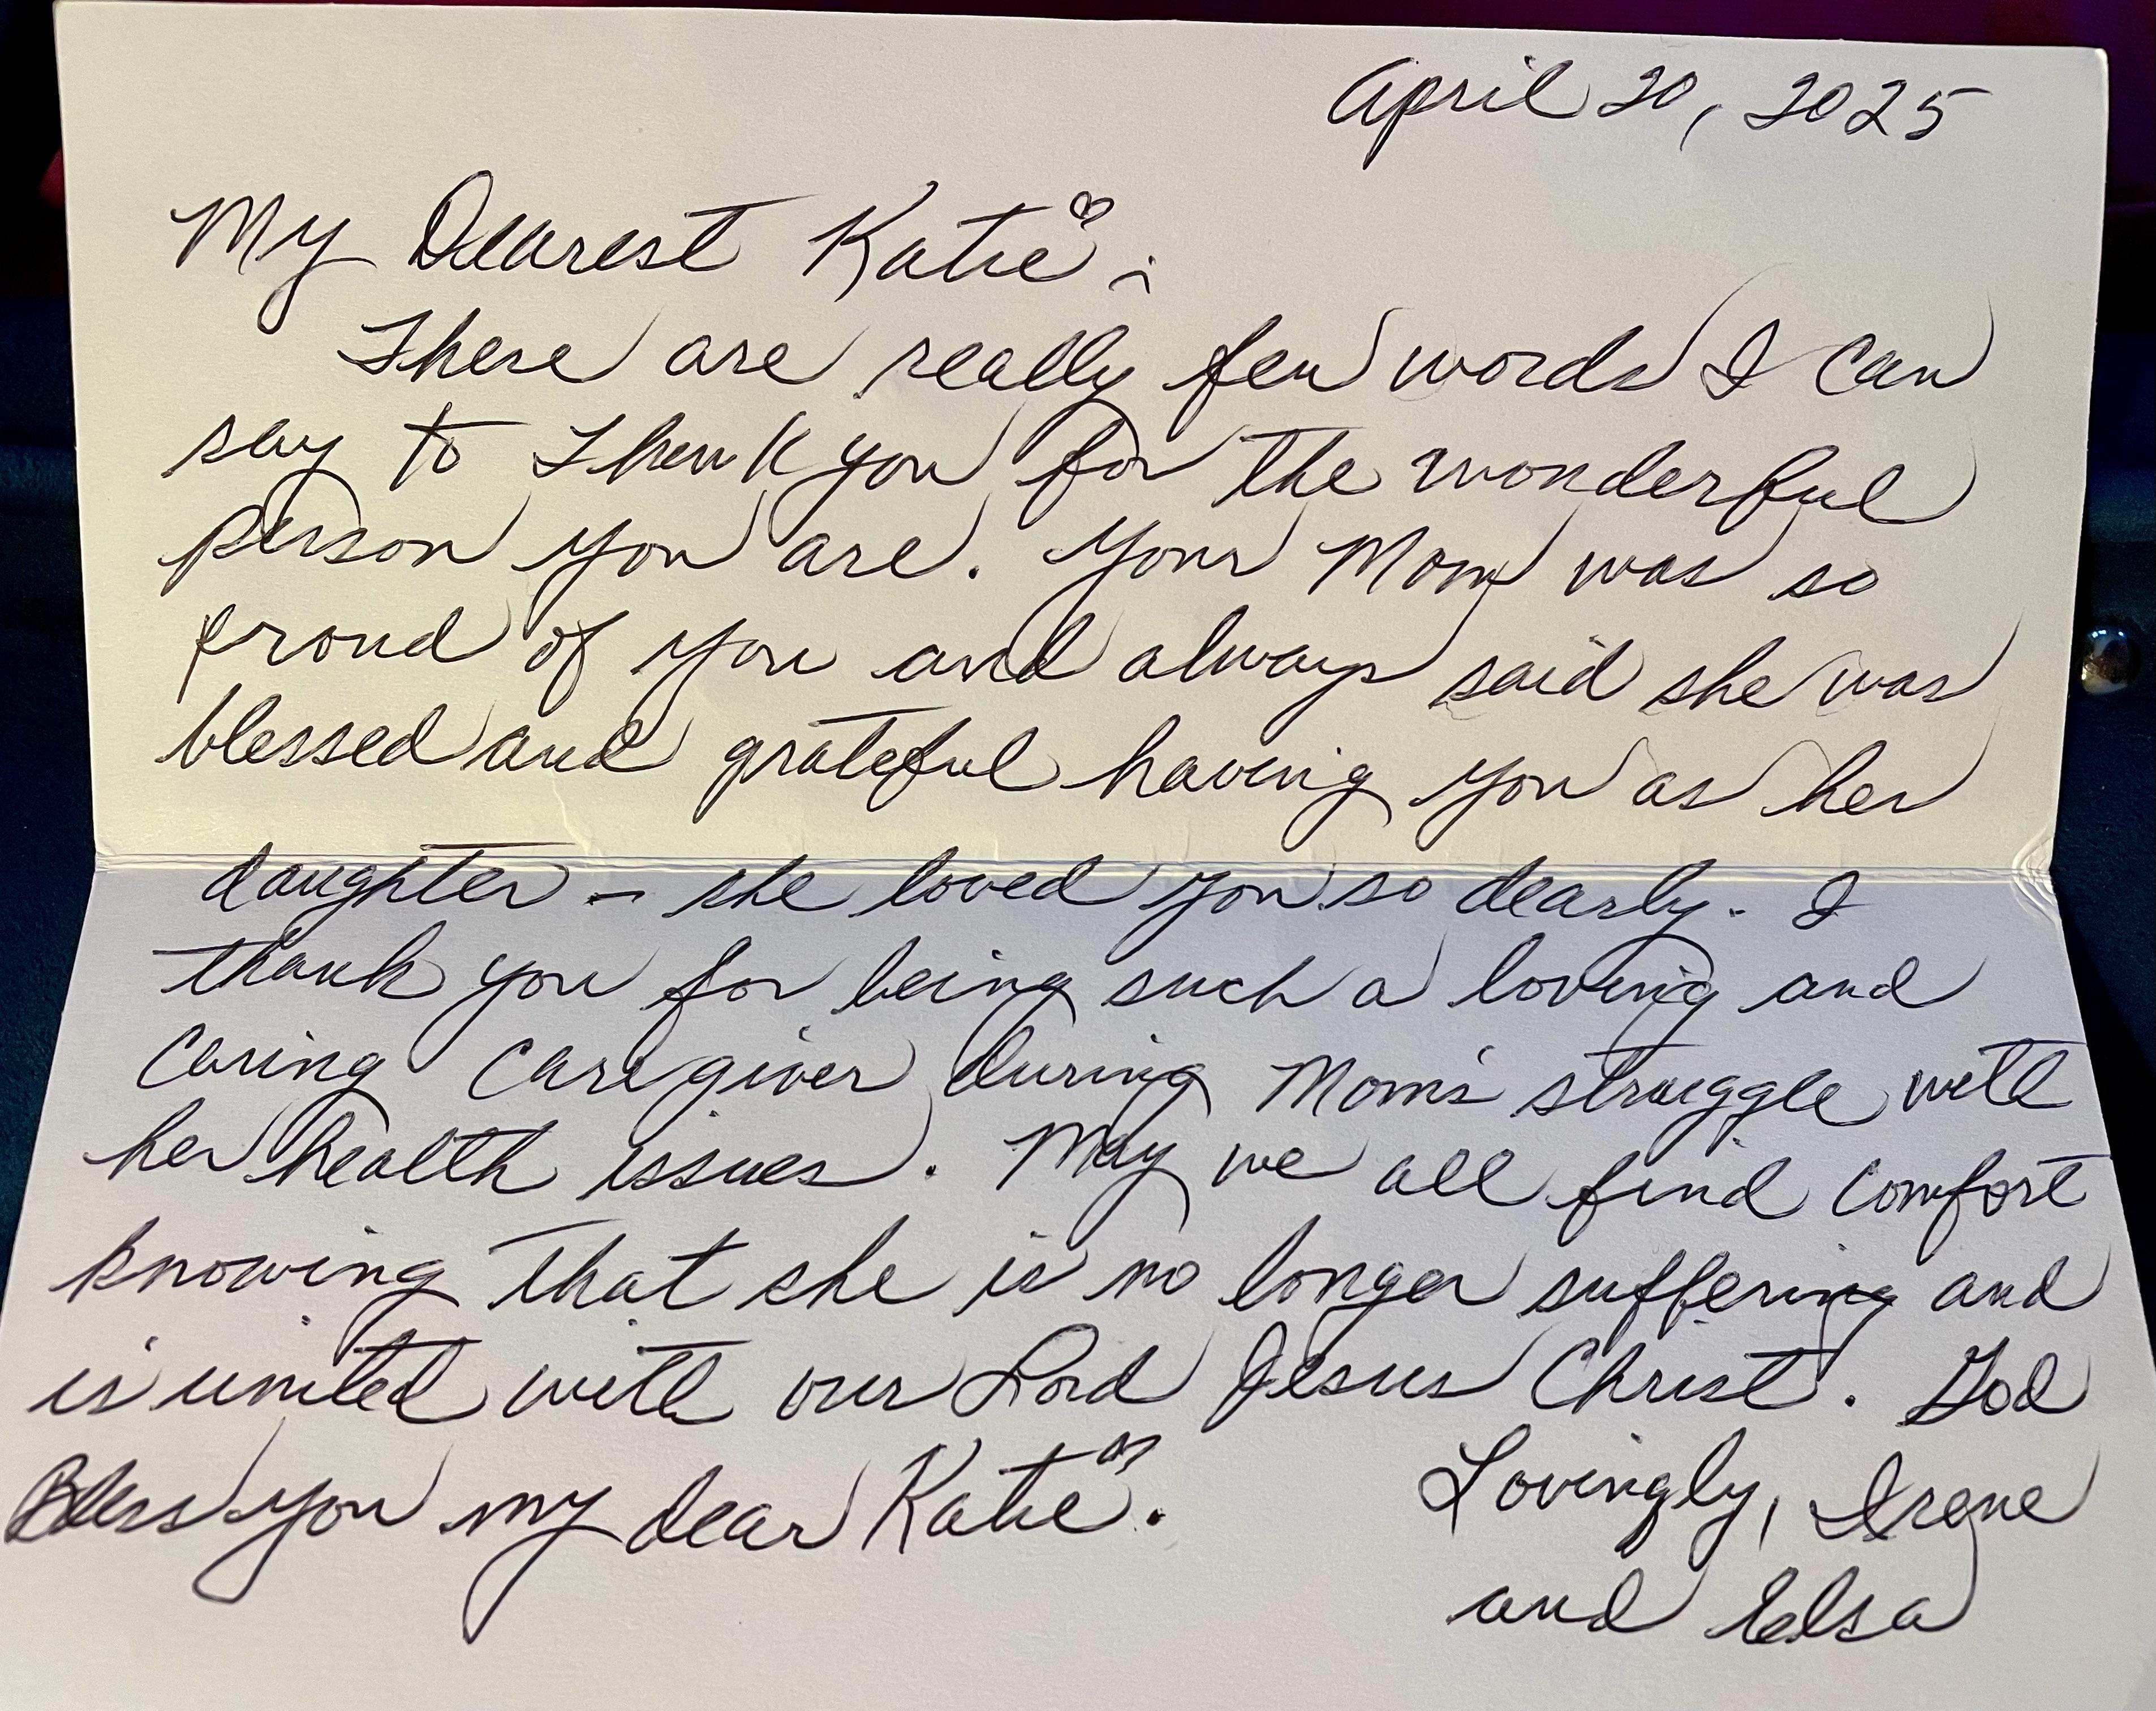 April 20, 2025
My Dearest Katie♡:
There are really few words I can
say to Thank you for the wonderful
person you are. Your Mom was so
proud of you and always said she was
blessed and grateful having you as her
daughter - she loved you so dearly. I
thank you for being such a loving and
caring caregiver during Mom's struggle with
her health issues. May we all find comfort
knowing that she is no longer suffering and
is united with our Lord Jesus Christ. God
Bless you my dear Katie♡.
Lovingly, Irene
and Elsa